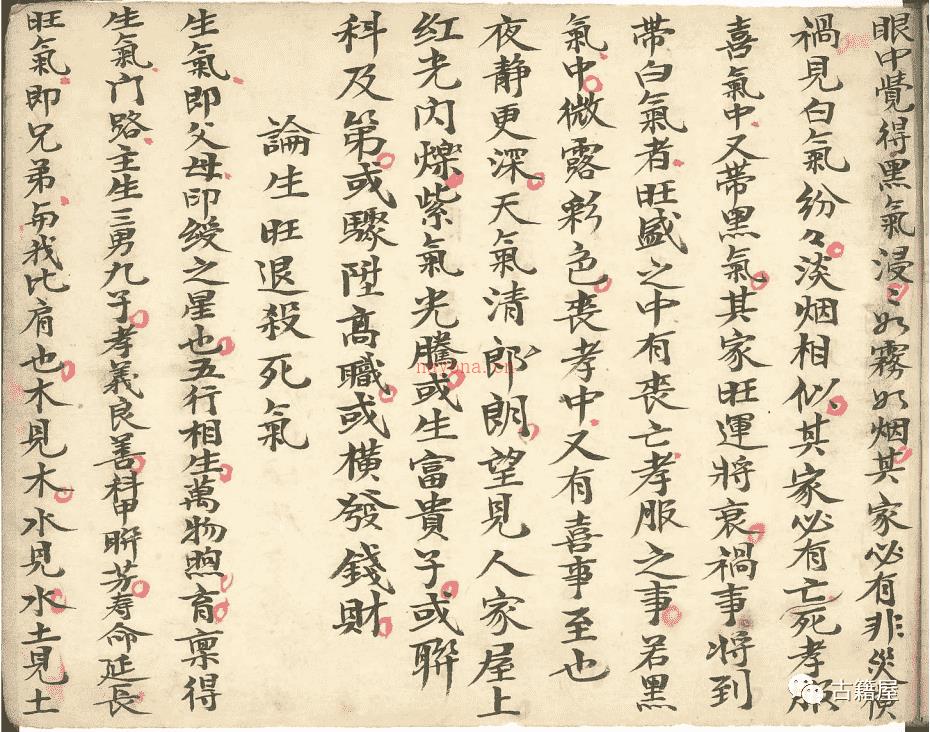 眼中覺得黑氣浸〻如霧如烟其家必有非災橫
禍見白氣紛〻淡烟相似其家必有亡死孝服
喜氣中又帶黑氣其家旺運將衰禍事將到
帶白氣者旺盛之中有喪亡孝服之事若黑
氣中微露彩色喪孝中又有喜事至也
夜静更深天氣清郎朗望見人家屋上
紅光闪爍紫氣光騰或生富貴子或聯
科及第或驟陞髙職或橫發錢財
論生旺退殺死氣
生氣即父母印綬之星也五行相生萬物煦育稟得
生氣门路主生三男九子孝義良善科甲聨芳寿命延長
旺氣即兄弟与我比肩也木見木水見水土見土
nayona.cn
古籍屋